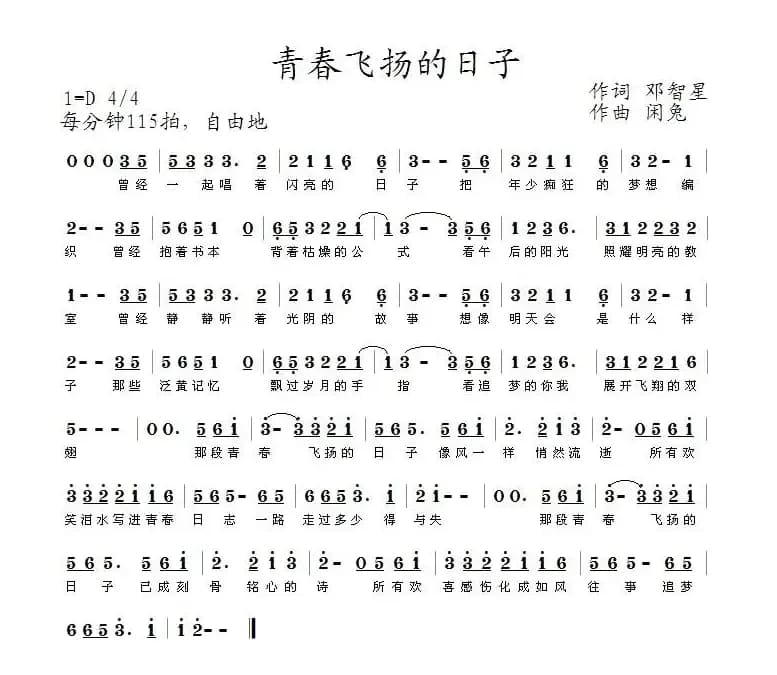 青春飞扬的日子
1=D 4/4
作词 邓智星
每分钟115拍，自由地
作曲 闲兔
0 0 0 3 5 | 5 3 3 3. 2 | 2 1 1 6 6 | 3 - - 5 6 | 3 2 2 1 6 | 3 2 - 1
曾经 一 起唱 着 闪亮的 日 子 把 年少痴狂 的 梦想 编
2 - - 3 5 | 5 6 5 1 0 | 6 5 3 2 2 1 | 1 3 - 3 5 6 | 1 2 3 6. | 3 1 2 2 3 2
织 曾经 抱着书本 背着枯燥的公 式 看午 后的阳光 照耀明亮的教
1 - - 3 5 | 5 3 3 3. 2 | 2 1 1 6 6 | 3 - - 5 6 | 3 2 2 1 6 | 3 2 - 1
室 曾经 静 静听 着 光阴的 故 事 想像 明天会 是 什么 样
2 - - 3 5 | 5 6 5 1 0 | 6 5 3 2 2 1 | 1 3 - 3 5 6 | 1 2 3 6. | 3 1 2 2 1 6
子 那些 泛黄记忆 飘过岁月的手 指 看追 梦的你我 展开飞翔的双
5 - - | 0 0. 5 6 1 | 3 - 3 3 2 1 | 5 6 5. 5 6 1 | 2. 2 1 3 | 2 - 0 5 6 1
翅 那段青 春 飞扬的 日 子 像风一 样 悄然流 逝 所有欢
3 3 2 2 1 1 6 | 5 6 5 - 6 5 | 6 5 5 3 2 1 | 1 2 - - | 0 0. 5 6 1 | 3 - 3 3 2 1
笑泪水写进青春 日 志 一路 走过多少 得 与失 那段青 春 飞扬的
5 6 5. 5 6 1 | 2. 2 1 3 | 2 - 0 5 6 1 | 3 3 2 2 1 1 6 | 5 6 5 - 6 5
日 子 已成刻 骨 铭心的 诗 所有欢 喜感伤化成如风 往 事 追梦
6 6 5 3. 1 | 1 2 - - ‖